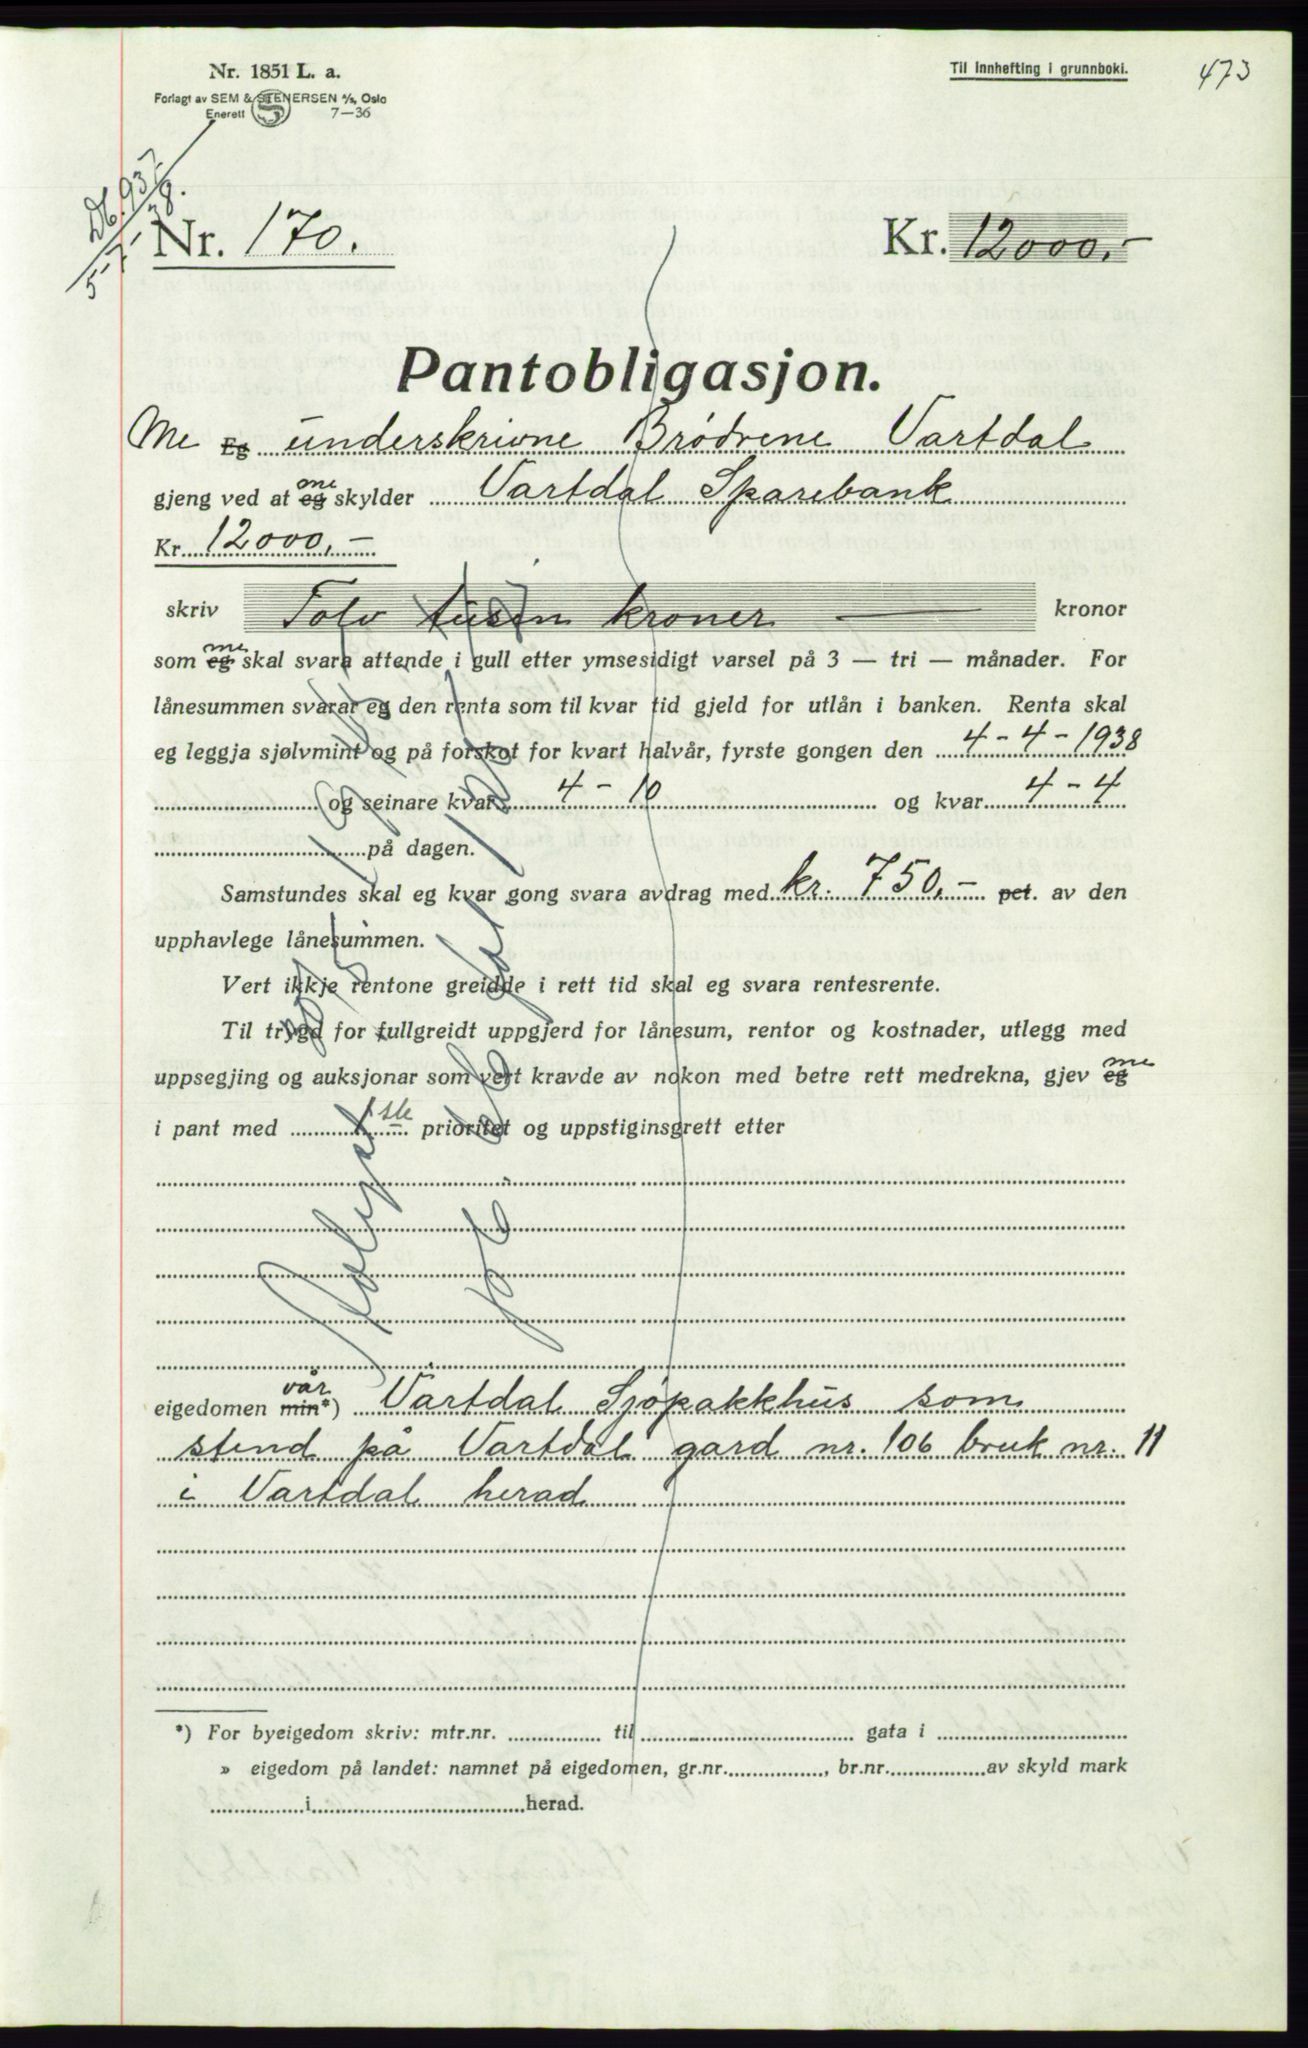 Nr. 1851 L. a.
Forlagt av SEM & STENERSEN A/S, Oslo
Enerett 7—36
Til innhefting i grunnboki.
473
Nr. 170.
Kr. 12000.-
Pantobligasjon.
Me Eg underskrivne Brødrene Vartdal
gjeng ved at eg me skylder Vartdal Sparebank
Kr. 12000,-
skriv Tolv tusen kroner kronor
som eg me skal svara attende i gull etter ymsesidigt varsel på 3 — tri — månader. For
lånesummen svarar eg den renta som til kvar tid gjeld for utlån i banken. Renta skal
eg leggja sjølvmint og på forskot for kvart halvår, fyrste gongen den 4-4-1938
og seinare kvar 4 - 10 og kvar 4 - 4
på dagen.
Samstundes skal eg kvar gong svara avdrag med kr. 750,- pct. av den
upphavlege lånesummen.
Vert ikkje rentone greidde i rett tid skal eg svara rentesrente.
Til trygd for fullgreidt uppgjerd for lånesum, rentor og kostnader, utlegg med
uppsegjing og auksjonar som vert kravde av nokon med betre rett medrekna, gjev eg me
i pant med 1ste prioritet og uppstiginsgrett etter
eigedomen min*) vår Vartdal Sjøpakkhus som
stend på Vartdal gard nr. 106 bruk nr. 11
i Vartdal herad
*) For byeigedom skriv: mtr.nr. til gata i
» eigedom på landet: namnet på eigedomen, gr.nr. , br.nr. av skyld mark
i herad.